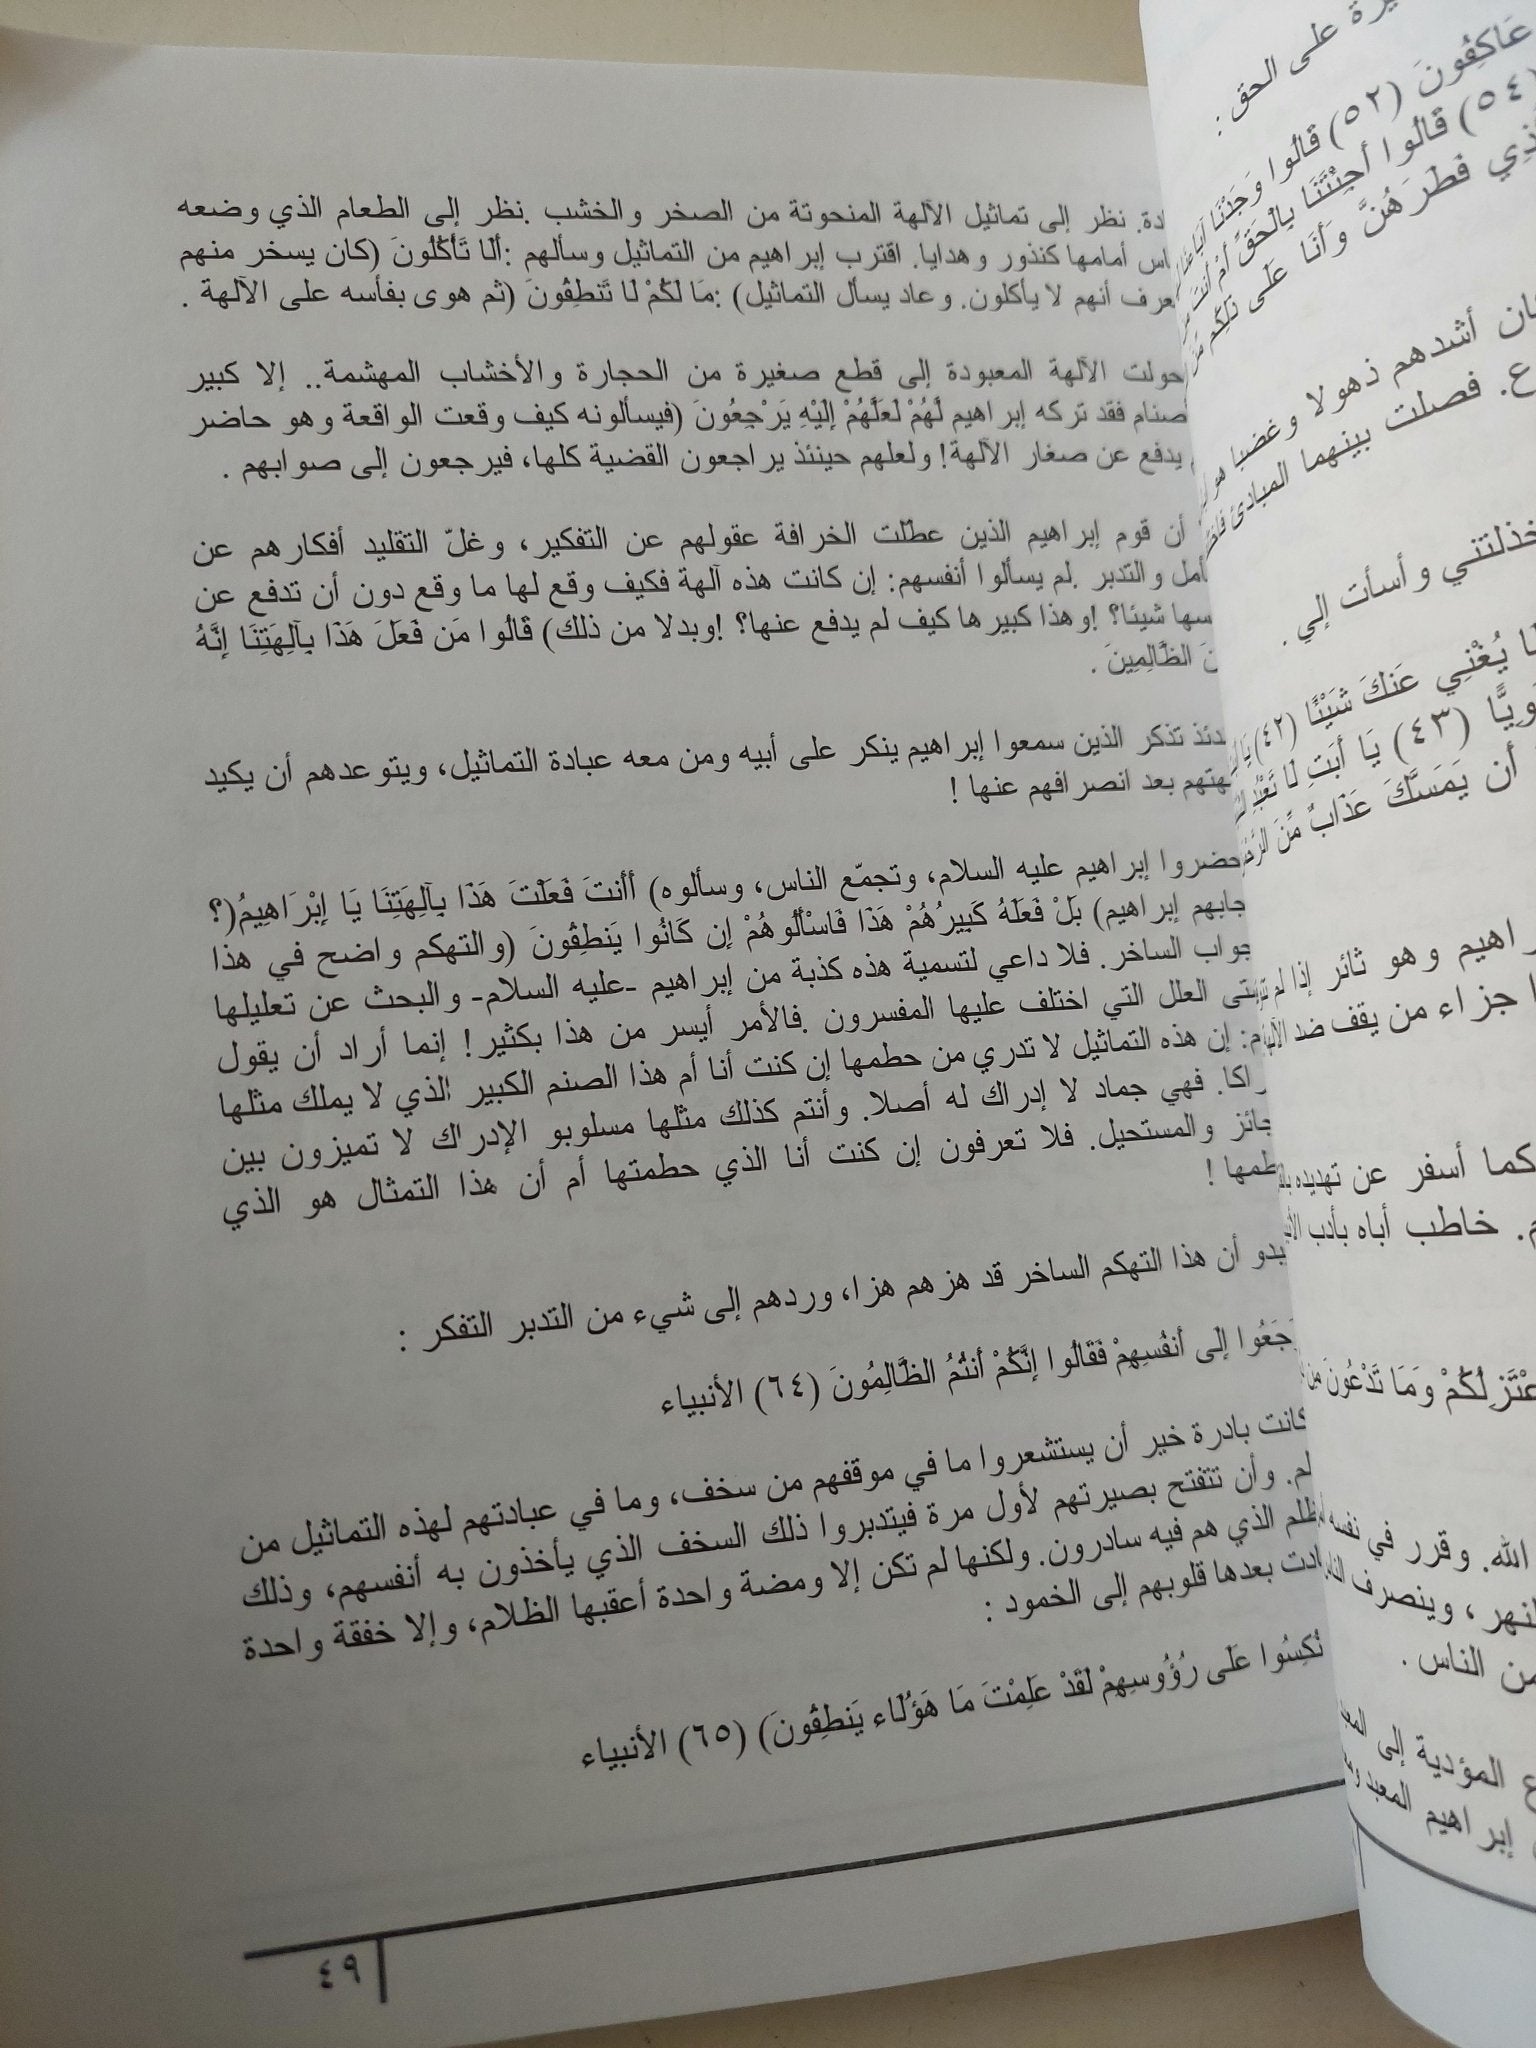 نظر إلى تماثيل الآلهة المنحوتة من الصخر والخشب .نظر إلى الطعام الذي وضعه
أمامها كنذور وهدايا. اقترب إبراهيم من التماثيل وسألهم :أَلَا تَأْكُلُونَ (كان يسخر منهم
أنهم لا يأكلون. وعاد يسأل التماثيل) :مَا لَكُمْ لَا تَنطِقُونَ (ثم هوى بفأسه على الآلهة .
الآلهة المعبودة إلى قطع صغيرة من الحجارة والأخشاب المهشمة.. إلا كبير
فقد تركه إبراهيم لَهُمْ لَعَلَّهُمْ إِلَيْهِ يَرْجِعُونَ (فيسألونه كيف وقعت الواقعة وهو حاضر
يدفع عن صغار الآلهة! ولعلهم حينئذ يراجعون القضية كلها، فيرجعون إلى صوابهم .
أن قوم إبراهيم الذين عطّلت الخرافة عقولهم عن التفكير، وغلّ التقليد أفكارهم عن
والتدبر .لم يسألوا أنفسهم: إن كانت هذه آلهة فكيف وقع لها ما وقع دون أن تدفع عن
شيئا؟ !وهذا كبيرها كيف لم يدفع عنها؟ !وبدلا من ذلك) قَالُوا مَن فَعَلَ هَذَا بِآلِهَتِنَا إِنَّهُ
الظَّالِمِينَ .
تذكر الذين سمعوا إبراهيم ينكر على أبيه ومن معه عبادة التماثيل، ويتوعدهم أن يكيد
بعد انصرافهم عنها !
إبراهيم عليه السلام، وتجمّع الناس، وسألوه) أَأَنتَ فَعَلْتَ هَذَا بِآلِهَتِنَا يَا إِبْرَاهِيمُ(؟
إبراهيم) بَلْ فَعَلَهُ كَبِيرُهُمْ هَذَا فَاسْأَلُوهُمْ إِن كَانُوا يَنطِقُونَ (والتهكم واضح في هذا
الساخر. فلا داعي لتسمية هذه كذبة من إبراهيم -عليه السلام- والبحث عن تعليلها
العلل التي اختلف عليها المفسرون .فالأمر أيسر من هذا بكثير! إنما أراد أن يقول
إن هذه التماثيل لا تدري من حطمها إن كنت أنا أم هذا الصنم الكبير الذي لا يملك مثلها
فهي جماد لا إدراك له أصلا. وأنتم كذلك مثلها مسلوبو الإدراك لا تميزون بين
والمستحيل. فلا تعرفون إن كنت أنا الذي حطمتها أم أن هذا التمثال هو الذي
!
أن هذا التهكم الساخر قد هزهم هزا، وردهم إلى شيء من التدبر التفكر :
إِلَى أَنفُسِهِمْ فَقَالُوا إِنَّكُمْ أَنتُمُ الظَّالِمُونَ (٦٤) الأنبياء
كانت بادرة خير أن يستشعروا ما في موقفهم من سخف، وما في عبادتهم لهذه التماثيل من
وأن تتفتح بصيرتهم لأول مرة فيتدبروا ذلك السخف الذي يأخذون به أنفسهم، وذلك
الذي هم فيه سادرون. ولكنها لم تكن إلا ومضة واحدة أعقبها الظلام، وإلا خفقة واحدة
بعدها قلوبهم إلى الخمود :
نُكِسُوا عَلَى رُؤُوسِهِمْ لَقَدْ عَلِمْتَ مَا هَؤُلَاء يَنطِقُونَ) (٦٥) الأنبياء
٤٩
على الحق :
عَاكِفُونَ (٥٢) قَالُوا وَجَدْنَا
(٥٤) قَالُوا أَجِئْتَنَا بِالْحَقِّ أَمْ أَنتَ
فَطَرَهُنَّ وَأَنَا عَلَى ذَلِكُم
أشدهم ذهولا وغضبا
فصلت بينهما المبادئ
وأسأت إلي .
يُغْنِي عَنكَ شَيْئًا (٤٢)
(٤٣) يَا أَبَتِ لَا
أَن يَمَسَّكَ عَذَابٌ مِّنَ
وهو ثائر إذا لم
جزاء من يقف ضد
كما أسفر عن تهديده
خاطب أباه بأدب
وَمَا تَدْعُونَ
الله. وقرر في نفسه
وينصرف
الناس .
المؤدية إلى
إبراهيم المعبد